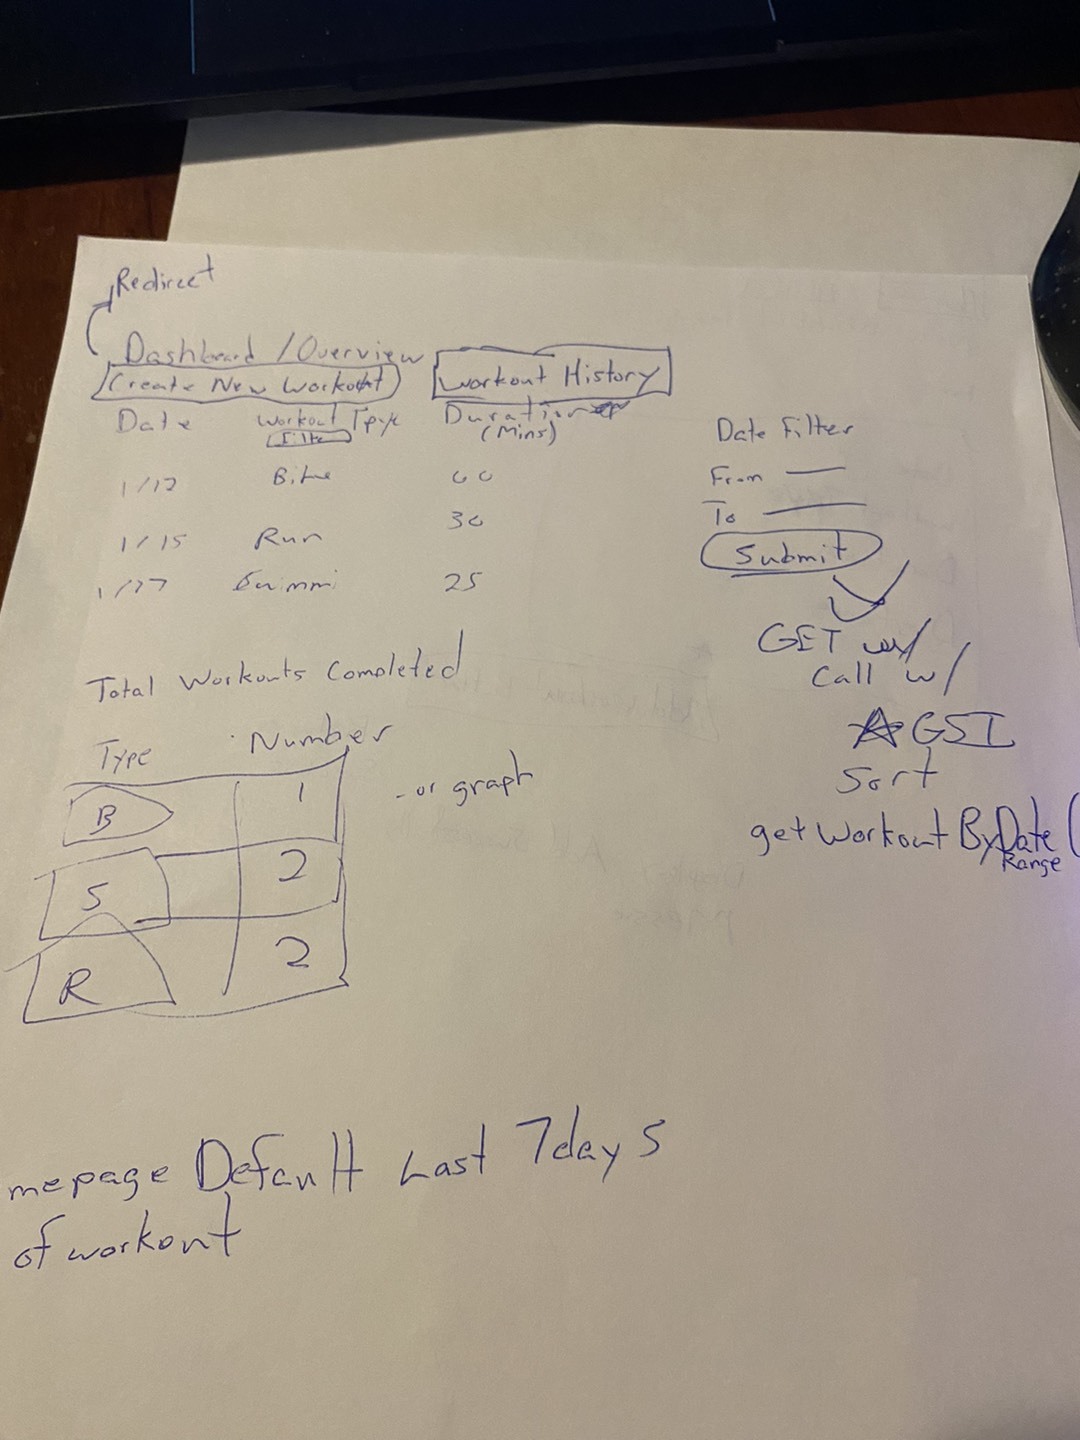 Redirect
Dashboard / Overview
Create New Workout
Workout History
Date Workout Tpye Duration
Filter
(Mins)
1/12 Bike 60
1/15 Run 30
1/27 25
Date Filter
From
To
Submit
GET w/
Call w/
GSI
Sort
getWorkoutByDate(
Range
Total Workouts Completed
Type Number
B 1
S 2
R 2
- or graph
mepage Default Last 7days
of workout